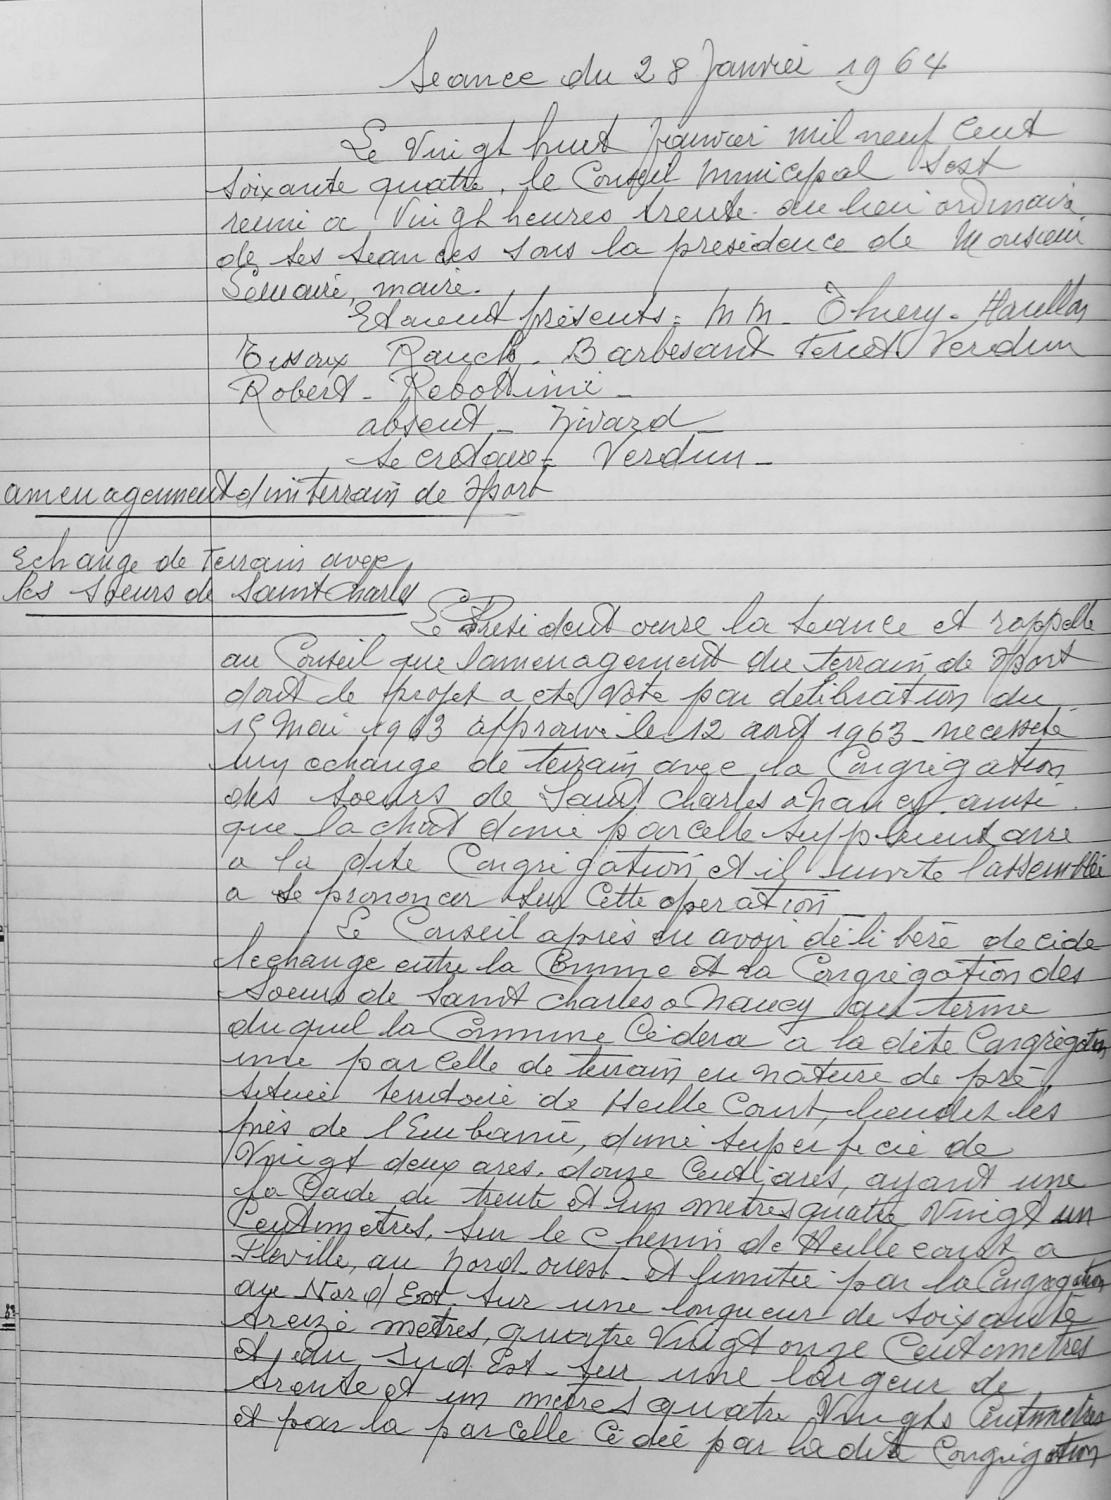 Seance du 28 Janvier 1964
Le Vingt huit Janvier mil neuf Cent
Soixante quatre, le Conseil Municipal Sest
reuni a Vingt heures trente au lieu ordinaire
de ses seances sous la presidence de Monsieur
Lemaire, maire.
Etaient présents: MM. Thiery - Haullon
Tisoux Rauch - Barbesant Feret Verdun
Robert - Rebottini -
absent - Nivard -
secretaire - Verdun -
amenagement d'un terrain de Sport
Echange de Terrain avec
les Soeurs de Saint Charles
Le President ouvre la Seance et rappelle
au Conseil que lamenagement du terrain de Sport
dont le projet a ete Voté par deliberation du
15 Mai 1963 approuvé le 12 aout 1963 - necessite
un echange de terrain avec la Congrégation
des Soeurs de Saint Charles a Nancy ainsi
que lachat dune parcelle supplementaire
a la dite Congrégation et il invite l'assemblée
a se prononcer sur Cette operation
Le Conseil aprés en avoir délibéré decide
lechange entre la Comune et la Congrégation des
Soeurs de Saint Charles a Nancy au terme
duquel la Commune Cédera a la dite Congrégation
une parcelle de terrain en nature de pré,
située territoire de Heille Court, lieudit les
prés de l'Embanie, dune superficie de
Vingt deux ares, douze Centiares, ayant une
facade de trente et un metres quatre Vingt un
Centimetres, sur le Chemin de Heillecourt a
Fléville, au Nord-ouest - et limitée par la Congregation
au Nord Est sur une longueur de soixante
treize metres, quatre Vingt onze Centimetres
et au Sud Est - sur une largeur de
trente et un metres quatre Vingts Centimetres
et par la parcelle Cédée par la dite Congrégation